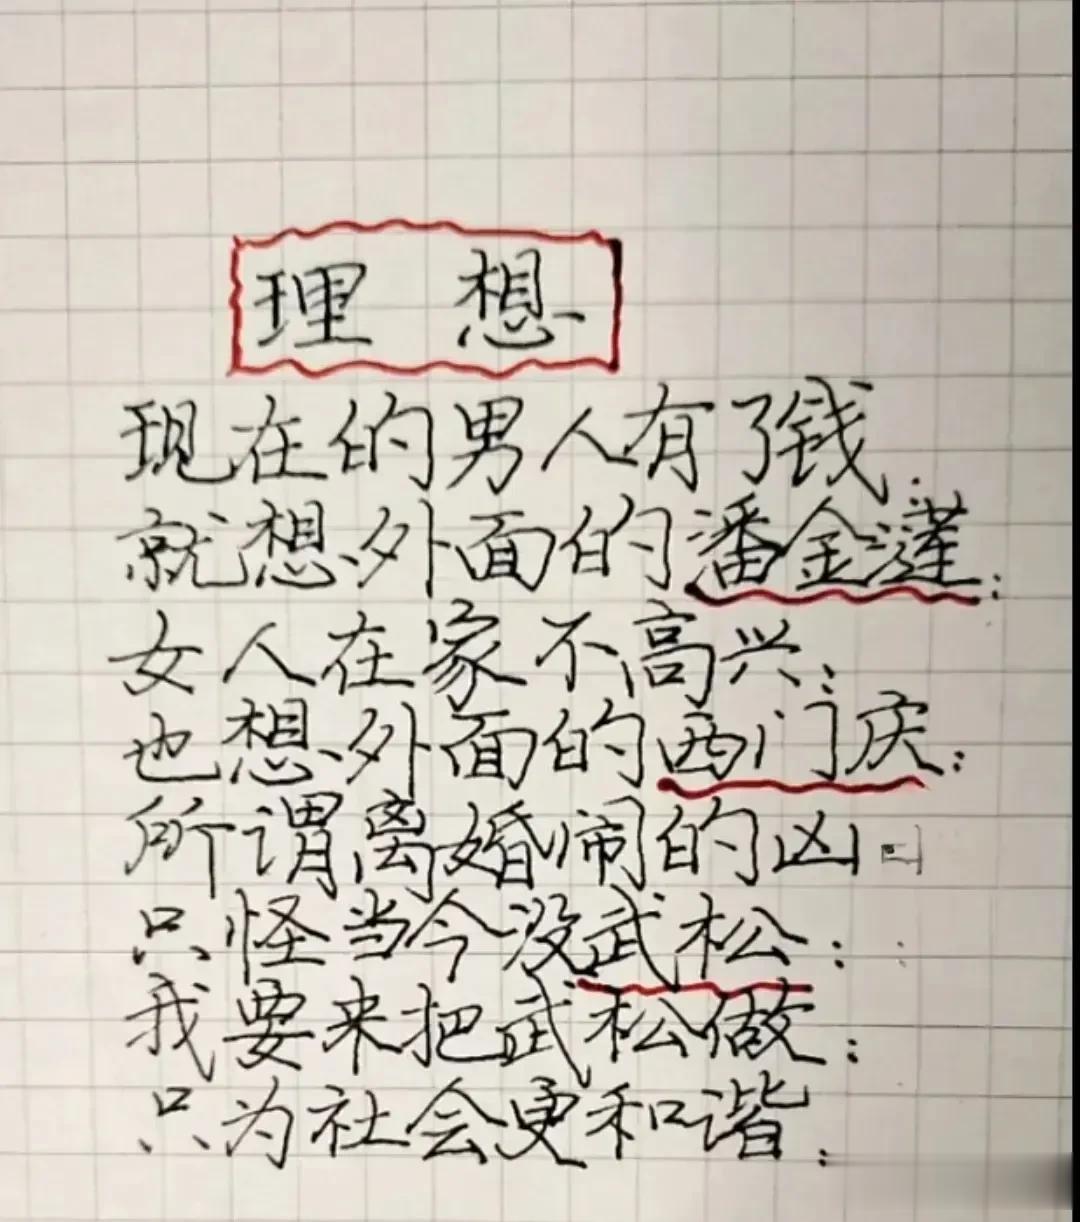 理想
现在的男人有了钱.
就想外面的潘金莲:
女人在家不高兴:
也想外面的西门庆:
所谓离婚闹的凶
只怪当今没武松:
我要来把武松做:
只为社会更和谐: